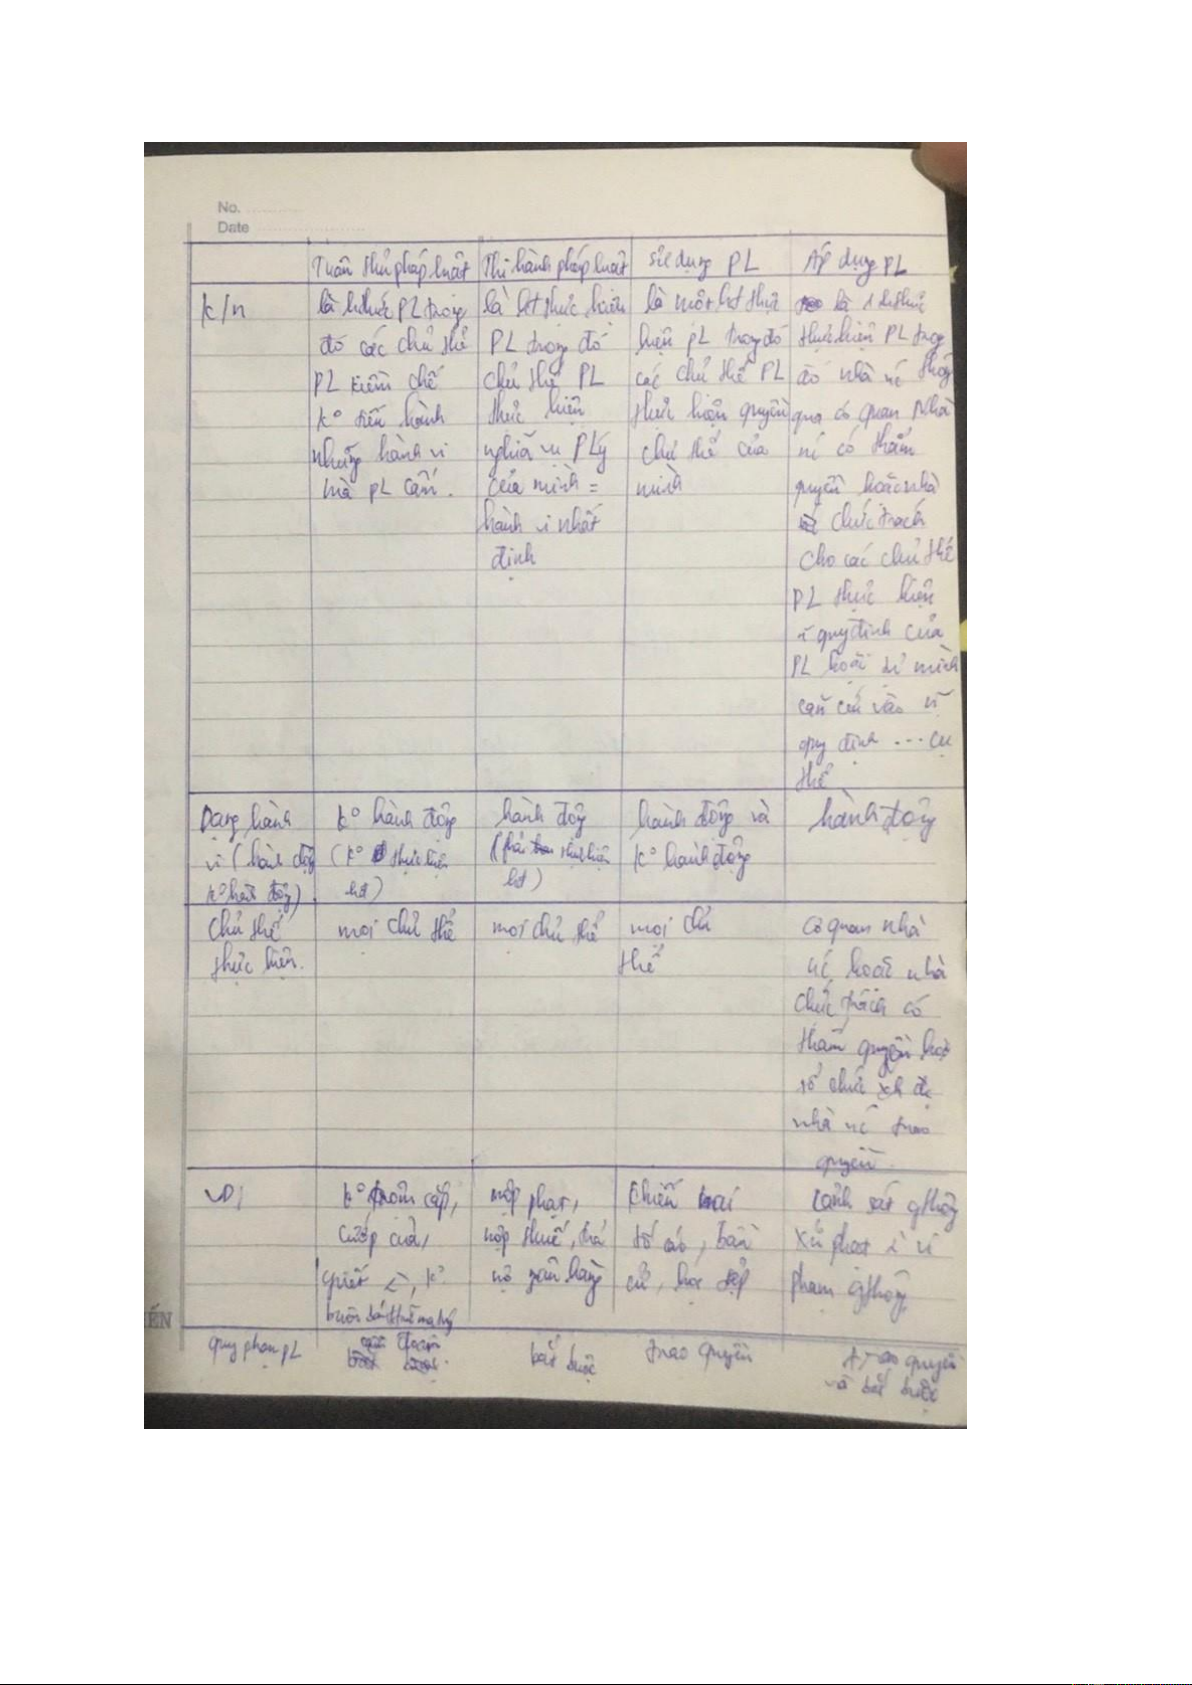 No.
Date
Tuân thủ pháp luật
Thi hành pháp luật
Sử dụng PL
Áp dụng PL
k/n
là h.thức PL trong
đó các chủ thể
PL kiềm chế
k° tiến hành
những hành vi
mà PL cấm.
là ht thực hiện
PL trong đó
chủ thể PL
thực hiện
nghĩa vụ PLý
của mình =
hành vi nhất
định
là một ht thực
hiện PL trong đó
các chủ thể PL
thực hiện quyền
chủ thể của
mình
là 1 h.thức
thực hiện PL trong
đó nhà nc thông
qua cơ quan nhà
nc có thẩm
quyền hoặc nhà
chức trách
cho các chủ thể
PL thực hiện
quy định của
PL hoặc tự mình
căn cứ vào
quy định ... cụ
thể
Dạng hành
vi (hành động
k° hành động)
k° hành động
(k° thực hiện
hđ)
hành động
(phải thực hiện
hđ)
hành động và
k° hành động
hành động
Chủ thể
thực hiện.
mọi chủ thể
mọi chủ thể
mọi chủ
thể
Cơ quan nhà
nc hoặc nhà
chức trách có
thẩm quyền hoặc
tổ chức xh đc
nhà nc trao
quyền.
VD:
k° trộm cắp,
cướp của,
giết, k°
buôn bán ma túy
nộp phạt,
nộp thuế, trả
nợ ngân hàng
khiếu nại
tố cáo, bầu
cử, học tập
cảnh sát gthông
xử phạt vi
phạm gthông
ẾN
quy phạm PL
bắt buộc
trao quyền
trao quyền
và bắt buộc